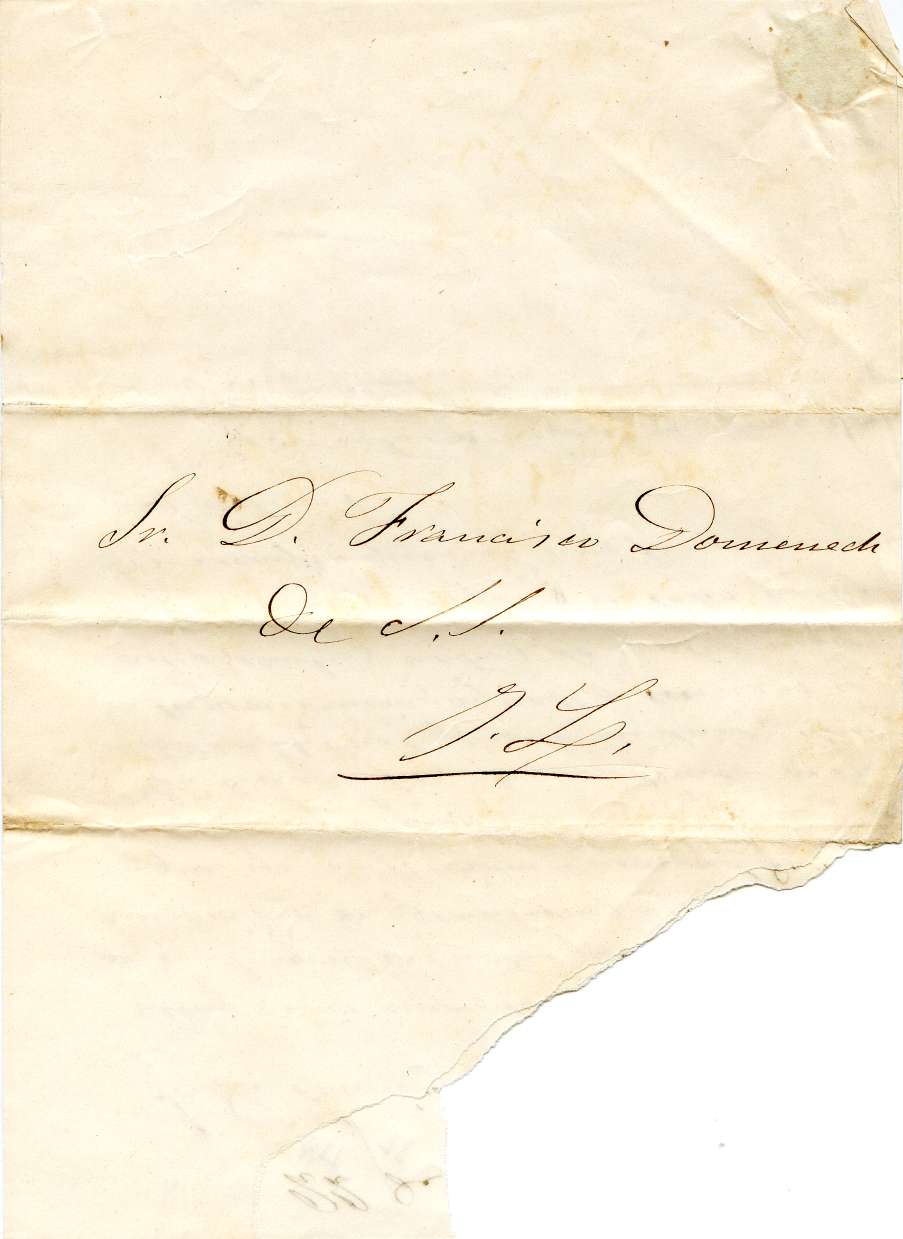 Sr. D. Francisco Domenech
De S. S.